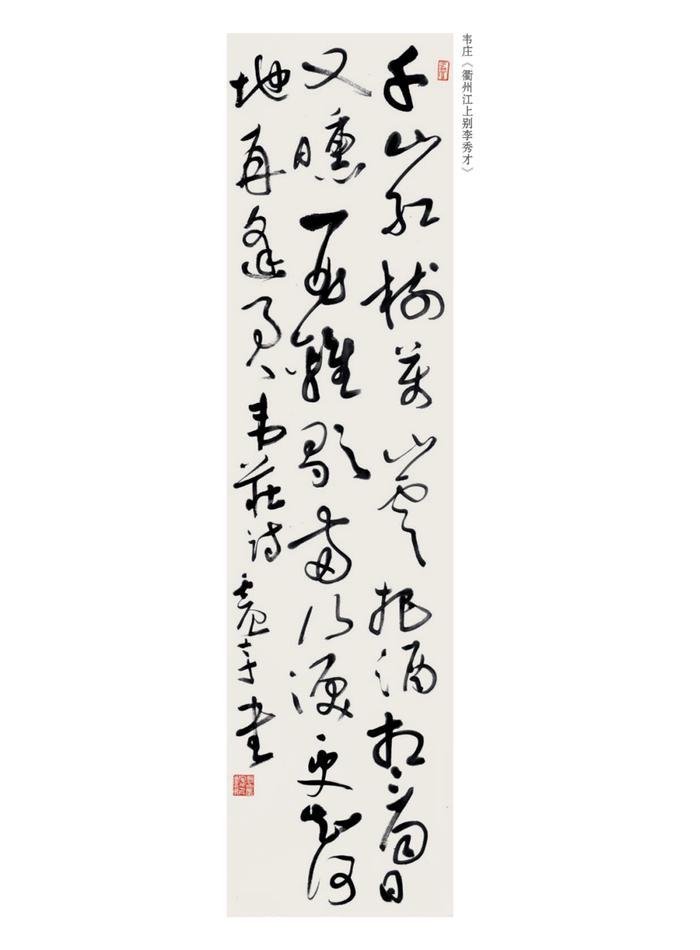 韦庄《衢州江上别李秀才》
千山红树万山雲把酒相看日
又曛一曲離歌两行泪更知何
地再逢君韦莊诗书